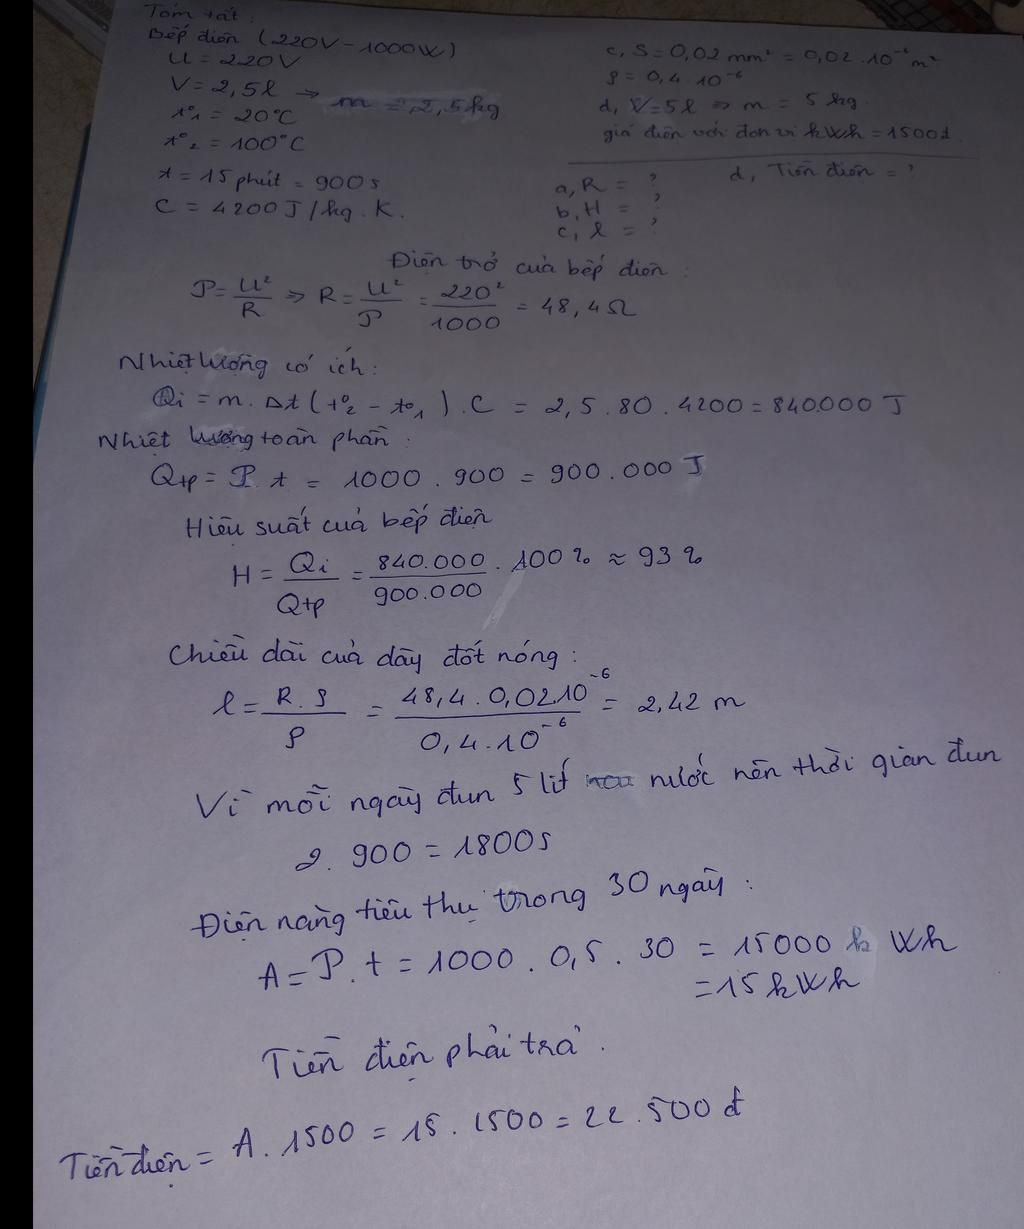 Tóm tắt:
Bếp điện (220V - 1000W)
U = 220V
V = 2,5l => m = 2,5kg
t°1 = 20°C
t°2 = 100°C
t = 15 phút = 900s
C = 4200J/kg.K.
c, S = 0,02mm² = 0,02.10⁻⁶m²
ρ = 0,4.10⁻⁶
d, V=5l => m = 5kg.
giá điện với đơn vị kWh = 1500đ.
a, R = ?
b, H = ?
c, l = ?
d, Tiền điện = ?
Điện trở của bếp điện:
P = U²/R => R = U²/P = 220²/1000 = 48,4Ω
Nhiệt lượng có ích:
Qi = m.Δt(t°2 - t°1).C = 2,5.80.4200 = 840.000J
Nhiệt lượng toàn phần:
Qtp = P.t = 1000.900 = 900.000J
Hiệu suất của bếp điện
H = Qi/Qtp = 840.000/900.000 . 100% ≈ 93%
Chiều dài của dây đốt nóng:
l = R.S/ρ = 48,4.0,02.10⁻⁶/0,4.10⁻⁶ = 2,42m
Vì mỗi ngày đun 5 lít nước nên thời gian đun
2.900 = 1800s
Điện năng tiêu thụ trong 30 ngày:
A = P.t = 1000.0,5.30 = 15000 Wh
= 15kWh
Tiền điện phải trả.
Tiền điện = A.1500 = 15.1500 = 22.500đ